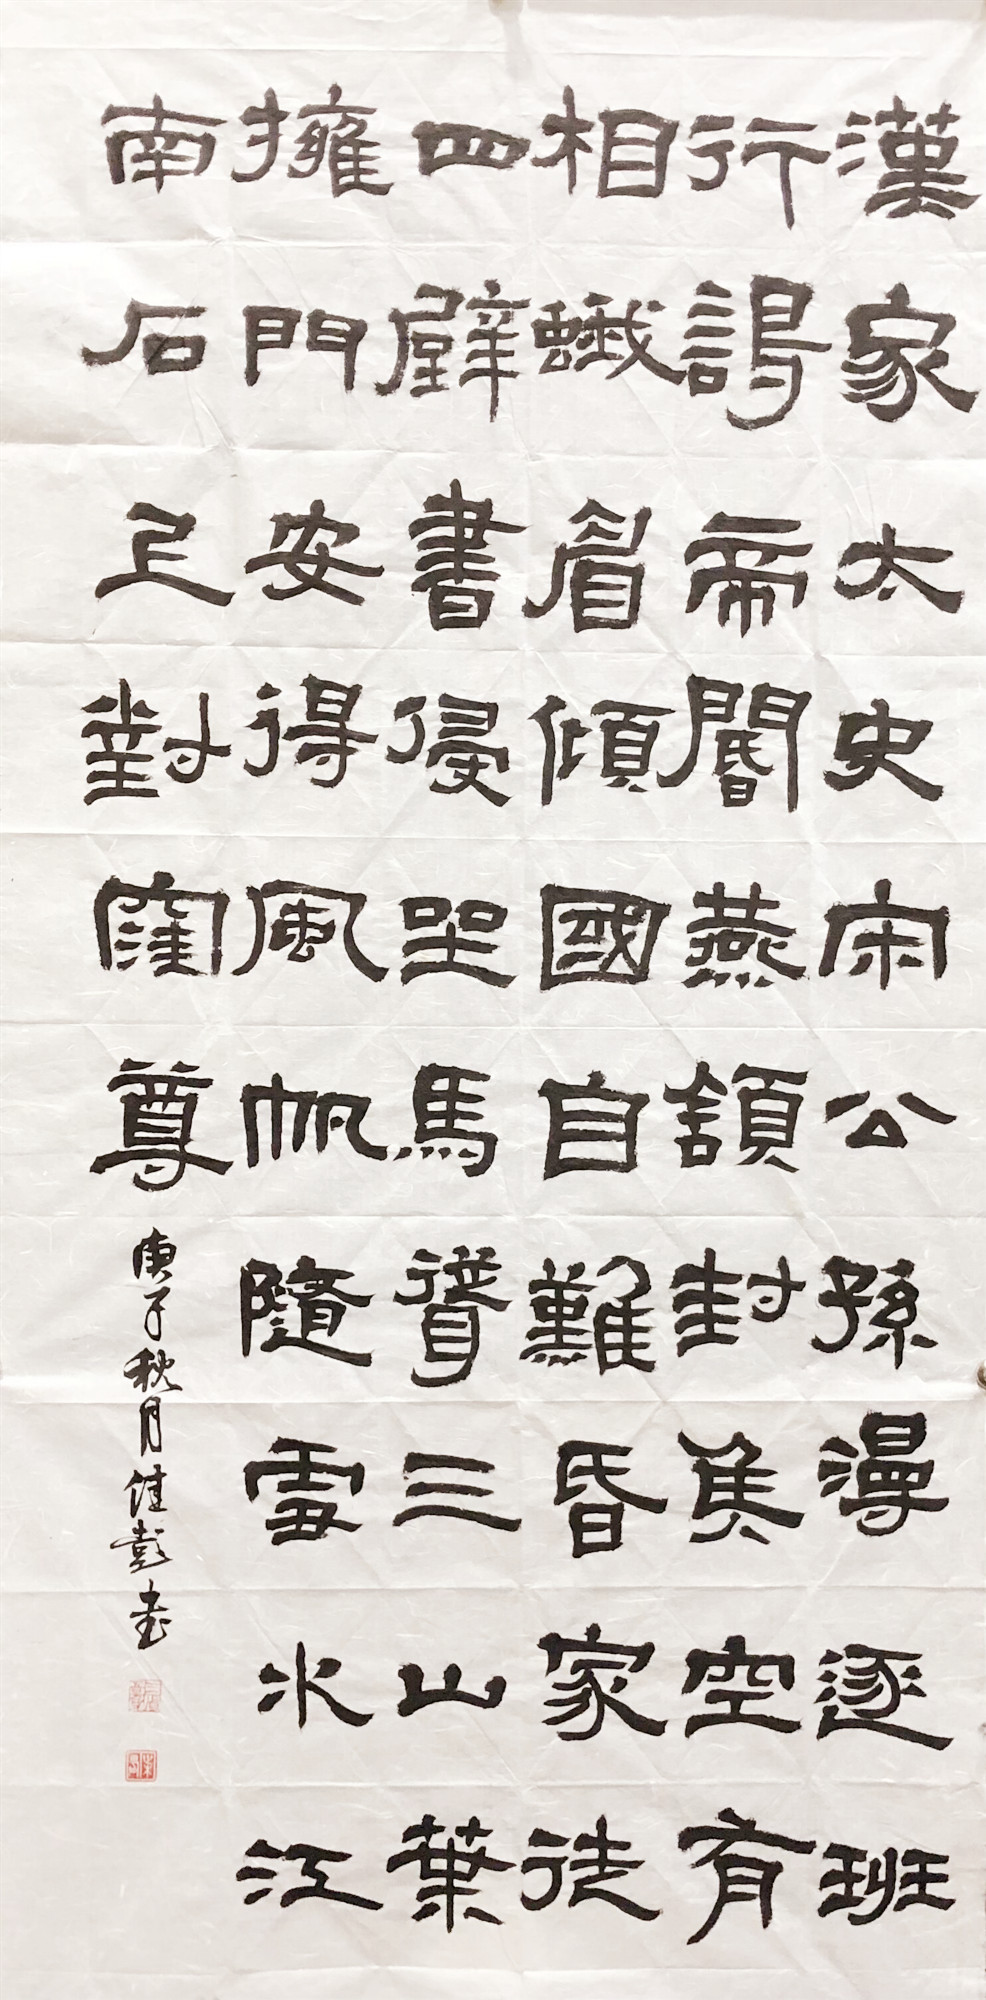 漢家太史宋公孫漫逐班
行謁帝閽燕頷封侯空有
相蛾眉傾國自難昏家徒
四壁書侵坐馬聳三山葉
擁門安得風帆隨雪水江
南石上對窪尊
庚子秋月佳彭书